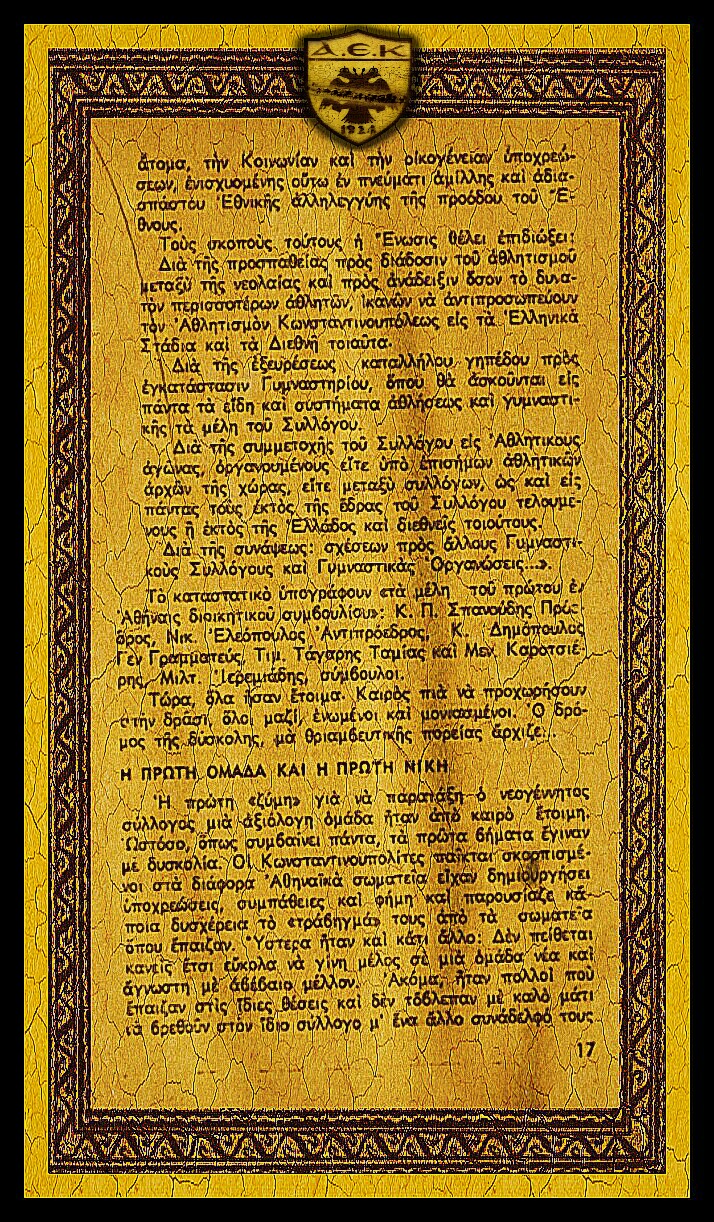 Α.Ε.Κ
1924
ἄτομα, τὴν Κοινωνίαν καὶ τὴν οἰκογένειαν ὑποχρεώ-
σεων, ἐνισχυομένης οὕτω ἐν πνεύματι ἁμίλλης καὶ ἀδια-
σπάστου Ἐθνικῆς ἀλληλεγγύης τῆς προόδου τοῦ Ἔ-
θνους.
Τοὺς σκοποὺς τούτους ἡ Ἕνωσις θέλει ἐπιδιώξει:
Διὰ τῆς προσπαθείας πρὸς διάδοσιν τοῦ ἀθλητισμοῦ
μεταξὺ τῆς νεολαίας καὶ πρὸς ἀνάδειξιν ὅσον τὸ δυνα-
τὸν περισσοτέρων ἀθλητῶν, ἱκανῶν νὰ ἀντιπροσωπεύουν
τὸν Ἀθλητισμὸν Κωνσταντινουπόλεως εἰς τὰ Ἑλληνικὰ
Στάδια καὶ τὰ Διεθνῆ τοιαῦτα.
Διὰ τῆς ἐξευρέσεως καταλλήλου γηπέδου πρὸς
ἐγκατάστασιν Γυμναστηρίου, ὅπου θὰ ἀσκοῦνται εἰς
πάντα τὰ εἴδη καὶ συστήματα ἀθλήσεως καὶ γυμναστι-
κῆς τὰ μέλη τοῦ Συλλόγου.
Διὰ τῆς συμμετοχῆς τοῦ Συλλόγου εἰς Ἀθλητικοὺς
ἀγῶνας, ὀργανουμένους εἴτε ὑπὸ ἐπισήμων ἀθλητικῶν
ἀρχῶν τῆς χώρας, εἴτε μεταξὺ συλλόγων, ὡς καὶ εἰς
πάντας τοὺς ἐκτὸς τῆς ἕδρας τοῦ Συλλόγου τελουμέ-
νους ἢ ἐκτὸς τῆς Ἑλλάδος καὶ διεθνεῖς τοιούτους.
Διὰ τῆς συνάψεως: σχέσεων πρὸς ἄλλους Γυμναστι-
κοὺς Συλλόγους καὶ Γυμναστικὰς Ὀργανώσεις...».
Τὸ καταστατικὸ ὑπογράφουν «τὰ μέλη τοῦ πρώτου ἐν
Ἀθήναις διοικητικοῦ συμβουλίου»: Κ. Π. Σπανούδης Πρόε-
δρος, Νικ. Ἐλεόπουλος Ἀντιπρόεδρος, Κ. Δημόπουλος
Γεν Γραμματεύς, Τιμ. Τάγαρης Ταμίας καὶ Μεν. Καροτσιέ-
ρης, Μιλτ. Ἱερεμιάδης, σύμβουλοι.
Τώρα, ὅλα ἦσαν ἕτοιμα. Καιρὸς πιὰ νὰ προχωρήσουν
στὴν δράσι, ὅλοι μαζί, ἑνωμένοι καὶ μονιασμένοι. Ὁ δρό-
μος τῆς δύσκολης, μὰ θριαμβευτικῆς πορείας ἄρχιζε...
Η ΠΡΩΤΗ ΟΜΑΔΑ ΚΑΙ Η ΠΡΩΤΗ ΝΙΚΗ
Ἡ πρώτη «ζύμη» γιὰ νὰ παρατάξη ὁ νεογέννητος
σύλλογος μιὰ ἀξιόλογη ὁμάδα ἦταν ἀπὸ καιρὸ ἕτοιμη.
Ὡστόσο, ὅπως συμβαίνει πάντα, τὰ πρῶτα βήματα ἔγιναν
μὲ δυσκολία. Οἱ Κωνσταντινουπολίτες παῖκται σκορπισμέ-
νοι στὰ διάφορα Ἀθηναϊκὰ σωματεῖα εἶχαν δημιουργήσει
ὑποχρεώσεις, συμπάθειες καὶ φήμη καὶ παρουσίαζε κά-
ποια δυσχέρεια τὸ «τράβηγμά» τους ἀπὸ τὰ σωματεῖα
ὅπου ἔπαιζαν. Ὕστερα ἦταν καὶ κάτι ἄλλο: Δὲν πείθεται
κανεὶς ἔτσι εὔκολα νὰ γίνη μέλος σὲ μιὰ ὁμάδα νέα καὶ
ἄγνωστη μὲ ἀβέβαιο μέλλον. Ἀκόμα, ἦταν πολλοὶ ποὺ
ἔπαιζαν στὶς ἴδιες θέσεις καὶ δὲν τὄβλεπαν μὲ καλὸ μάτι
νὰ βρεθοῦν στὸν ἴδιο σύλλογο μ' ἕνα ἄλλο συνάδελφό τους.
17